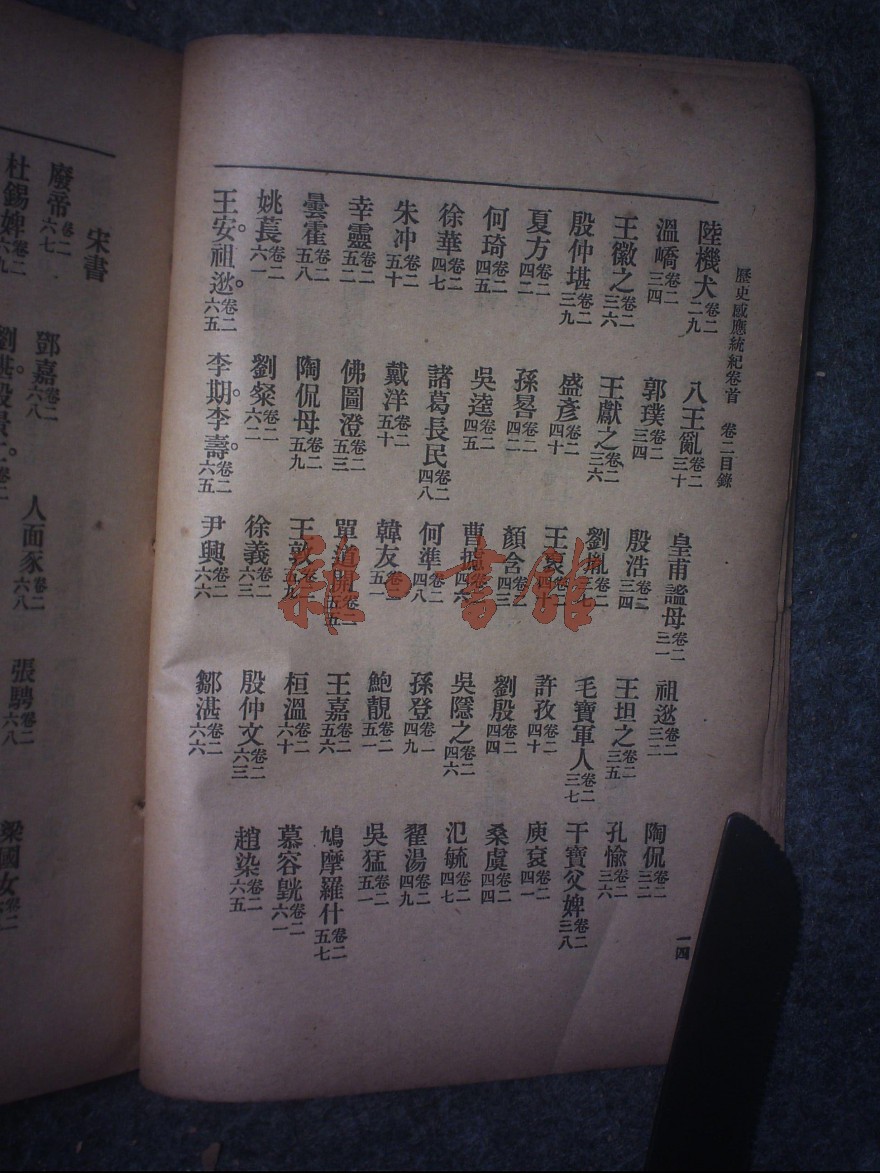 歷史感應統紀卷首 卷二目錄 一四
陸機犬卷二二九 八王亂卷二三十 皇甫謐母卷二三一 祖逖卷二三二 陶侃卷二三二
溫嶠卷二三四 郭璞卷二三四 殷浩卷二三四 王坦之卷二三五 孔愉卷二三六
王徽之卷二三六 王獻之卷二三六 劉胤卷二三七 毛寶軍人卷二三七 干寶父婢卷二三八
殷仲堪卷二三九 盛彥卷二四十 王裒卷二四十 許孜卷二四十 庾袞卷二四一
夏方卷二四二 孫晷卷二四二 顏含卷二四三 劉殷卷二四四 桑虞卷二四四
何琦卷二四五 吳逵卷二四五 曹攄卷二四六 吳隱之卷二四六 氾毓卷二四七
徐華卷二四七 諸葛長民卷二四八 何準卷二四八 孫登卷一四九 翟湯卷二四九
朱冲卷二五十 戴洋卷二五十 韓友卷二五一 鮑靚卷二五一 吳猛卷二五一
幸靈卷二五二 佛圖澄卷二五三 單道開卷二五五 王嘉卷二五六 鳩摩羅什卷二五七
曇霍卷二五八 陶侃母卷二五九 王敦卷二五九 桓溫卷二六十 慕容皝卷二六一
姚萇卷二六一 劉粲卷二六一 徐義卷二六三 殷仲文卷二六三 趙染卷二六五
王安。祖逖。卷二六五 李期。李壽。卷二六五 尹興卷二六六 鄒湛卷二六六
宋書
廢帝卷二六七 鄧嘉卷二六八 人面豕卷二六八 張騁卷二六八 梁國女卷二
杜錫婢卷二六九
雜·書館